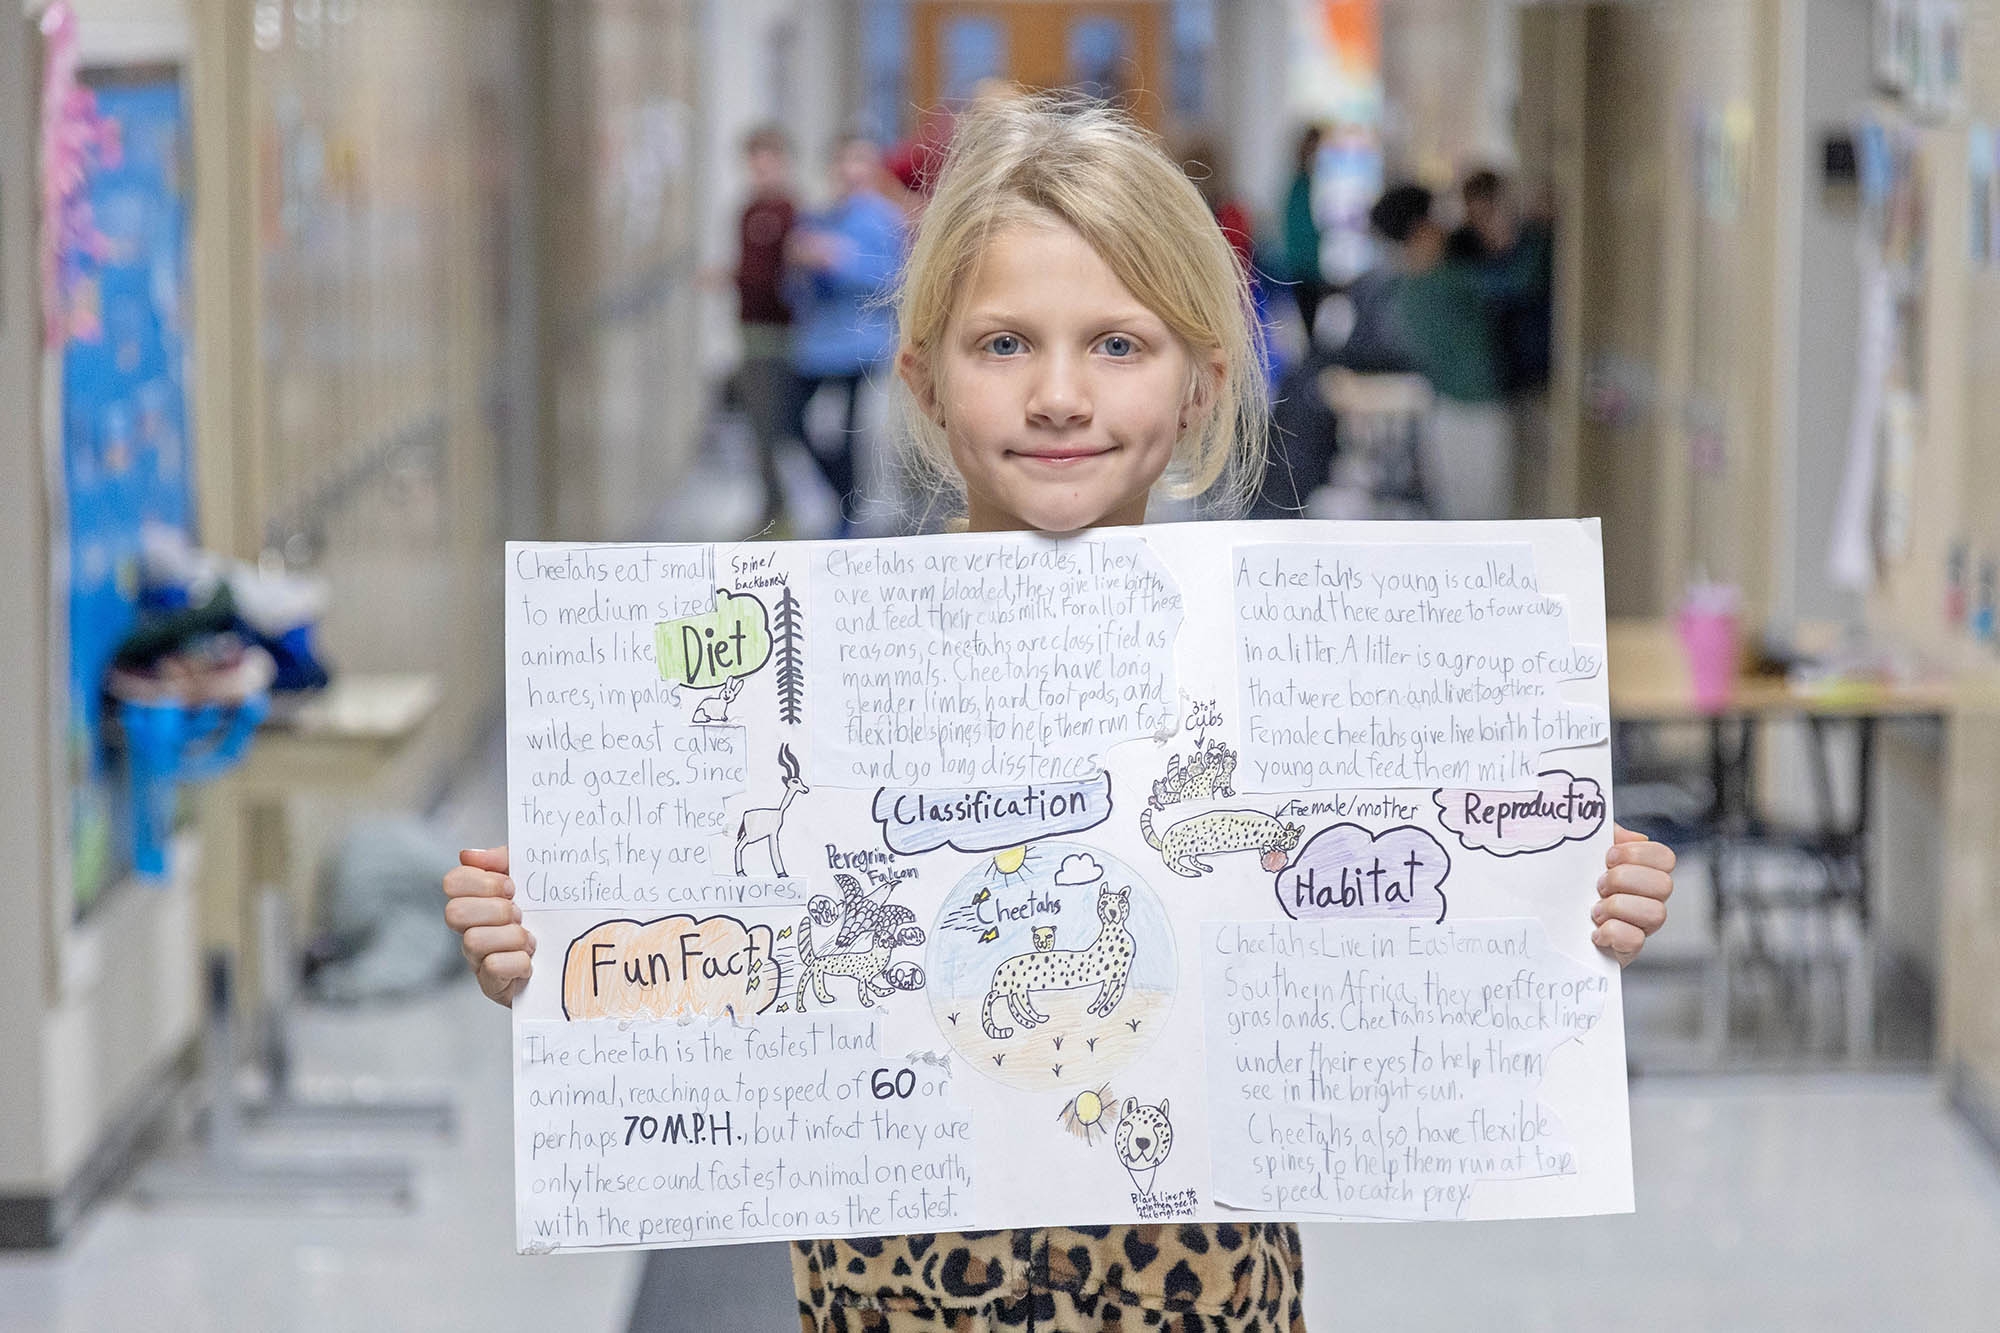 Cheetahs eat small
to medium sized
animals like,
hares, impalas,
wilde beast calves,
and gazelles. Since
they eat all of these
animals, they are
Classified as carnivores.
Diet
Spine/
backbone
Cheetahs are vertebrates. They
are warm blooded, they give live birth,
and feed their cubs milk. For all of these
reasons, cheetahs are classified as
mammals. Cheetahs have long
slender limbs, hard foot pads, and
flexible spines to help them run fast
and go long disstences.
Classification
A cheetah's young is called a
cub and there are three to four cubs
in a litter. A litter is a group of cubs
that were born and live together.
Female cheetahs give live birth to their
young and feed them milk.
Reproduction
3 to 4
Cubs
Female/mother
Habitat
Cheetahs Live in Eastern and
Southern Africa, they perffer open
graslands. Cheetahs have black liner
under their eyes to help them
see in the bright sun.
Cheetahs also have flexible
spines, to help them run at top
speed to catch prey.
Peregrine
Falcon
Cheetahs
Fun Fact
The cheetah is the fastest land
animal, reaching a top speed of 60 or
perhaps 70 M.P.H., but infact they are
only the secound fastest animal on earth,
with the peregrine falcon as the fastest.
Black liner to
help them see in
the bright sun!